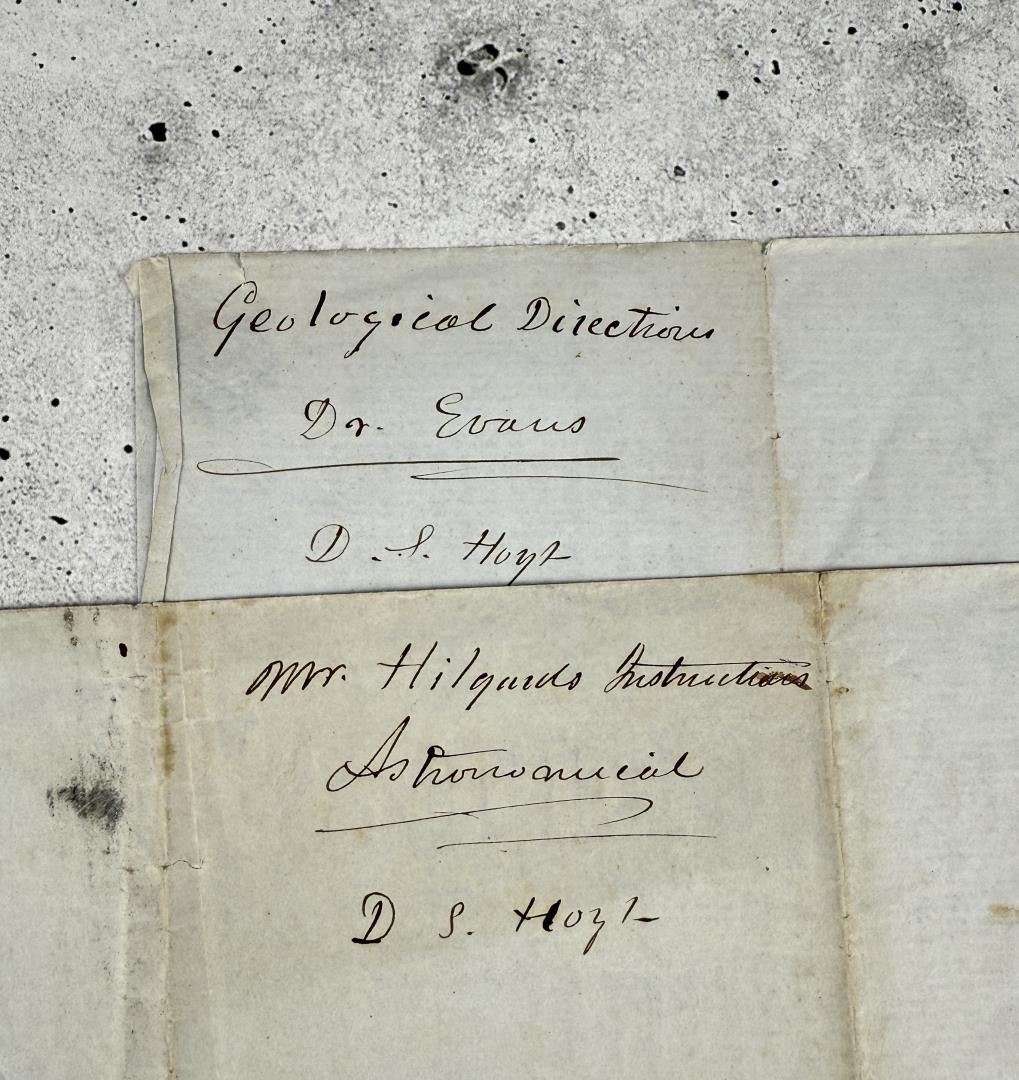 Geological Directions
Dr. Evans
D. S. Hoyt
Mr. Hilgards Instructions
Astronomical
D S. Hoyt